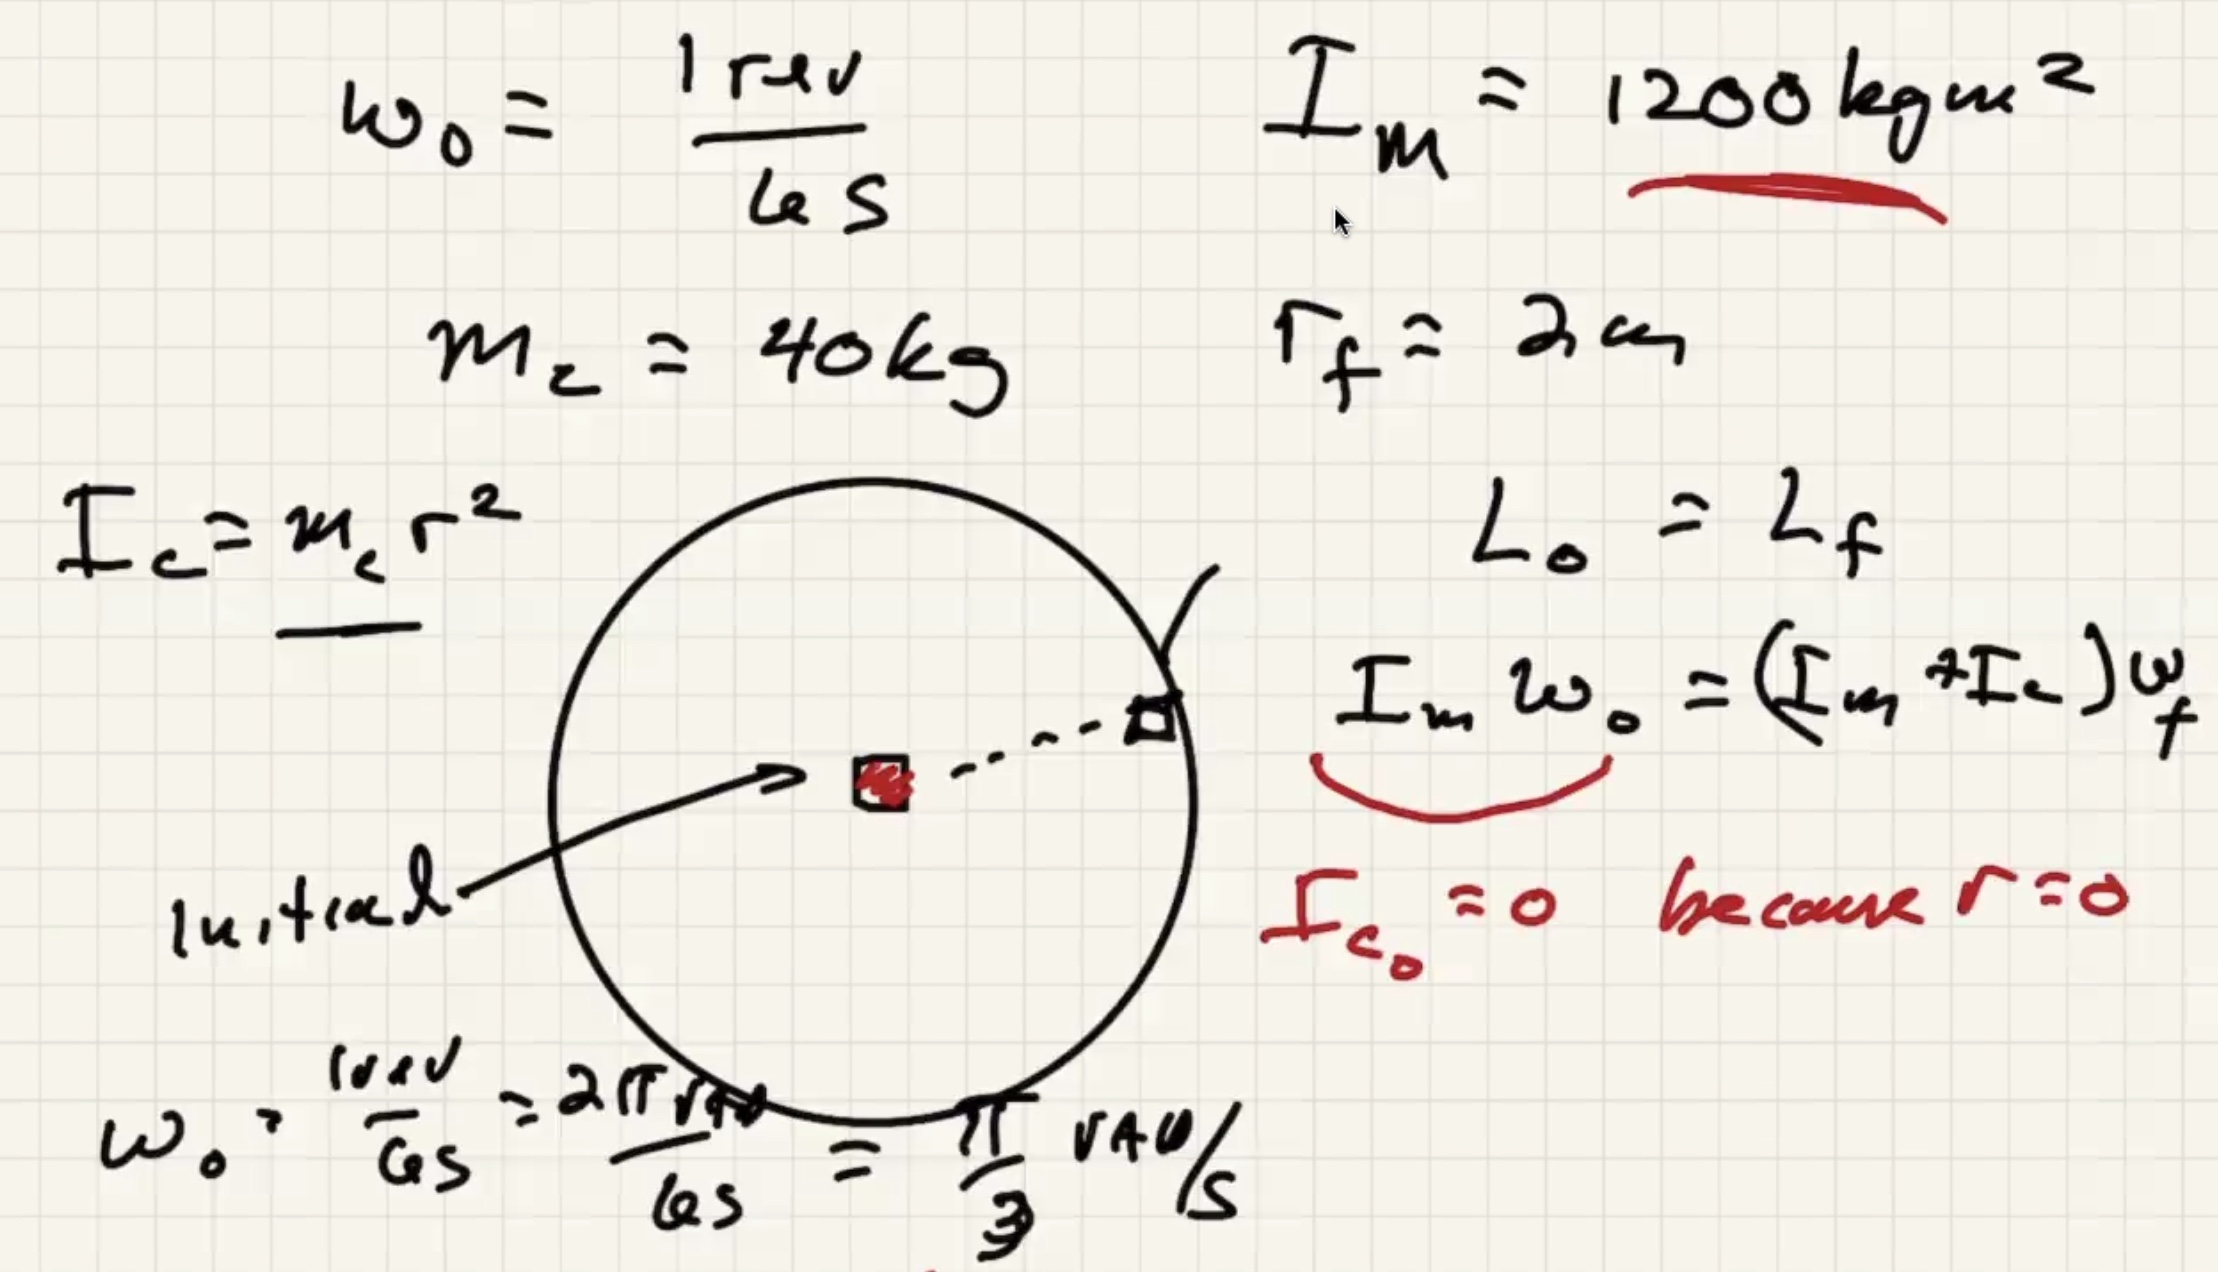 ω₀ = 1 rev / 6 s
I_m = 1200 kg m²
m_c = 40 kg
r_f = 2 m
I_c = m_c r²
L₀ = L_f
I_m ω₀ = (I_m + I_c) ω_f
Initial
I_c₀ = 0 because r = 0
ω₀ = 1 rev / 6 s = 2π rad / 6 s = π / 3 rad/s